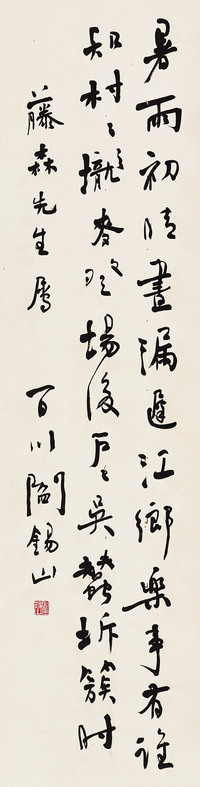 暑雨初晴晝漏遲江鄉樂事有誰
知村〻攏麥登場後戶〻吳蠶坼簇時
藤森先生属 百川閻錫山